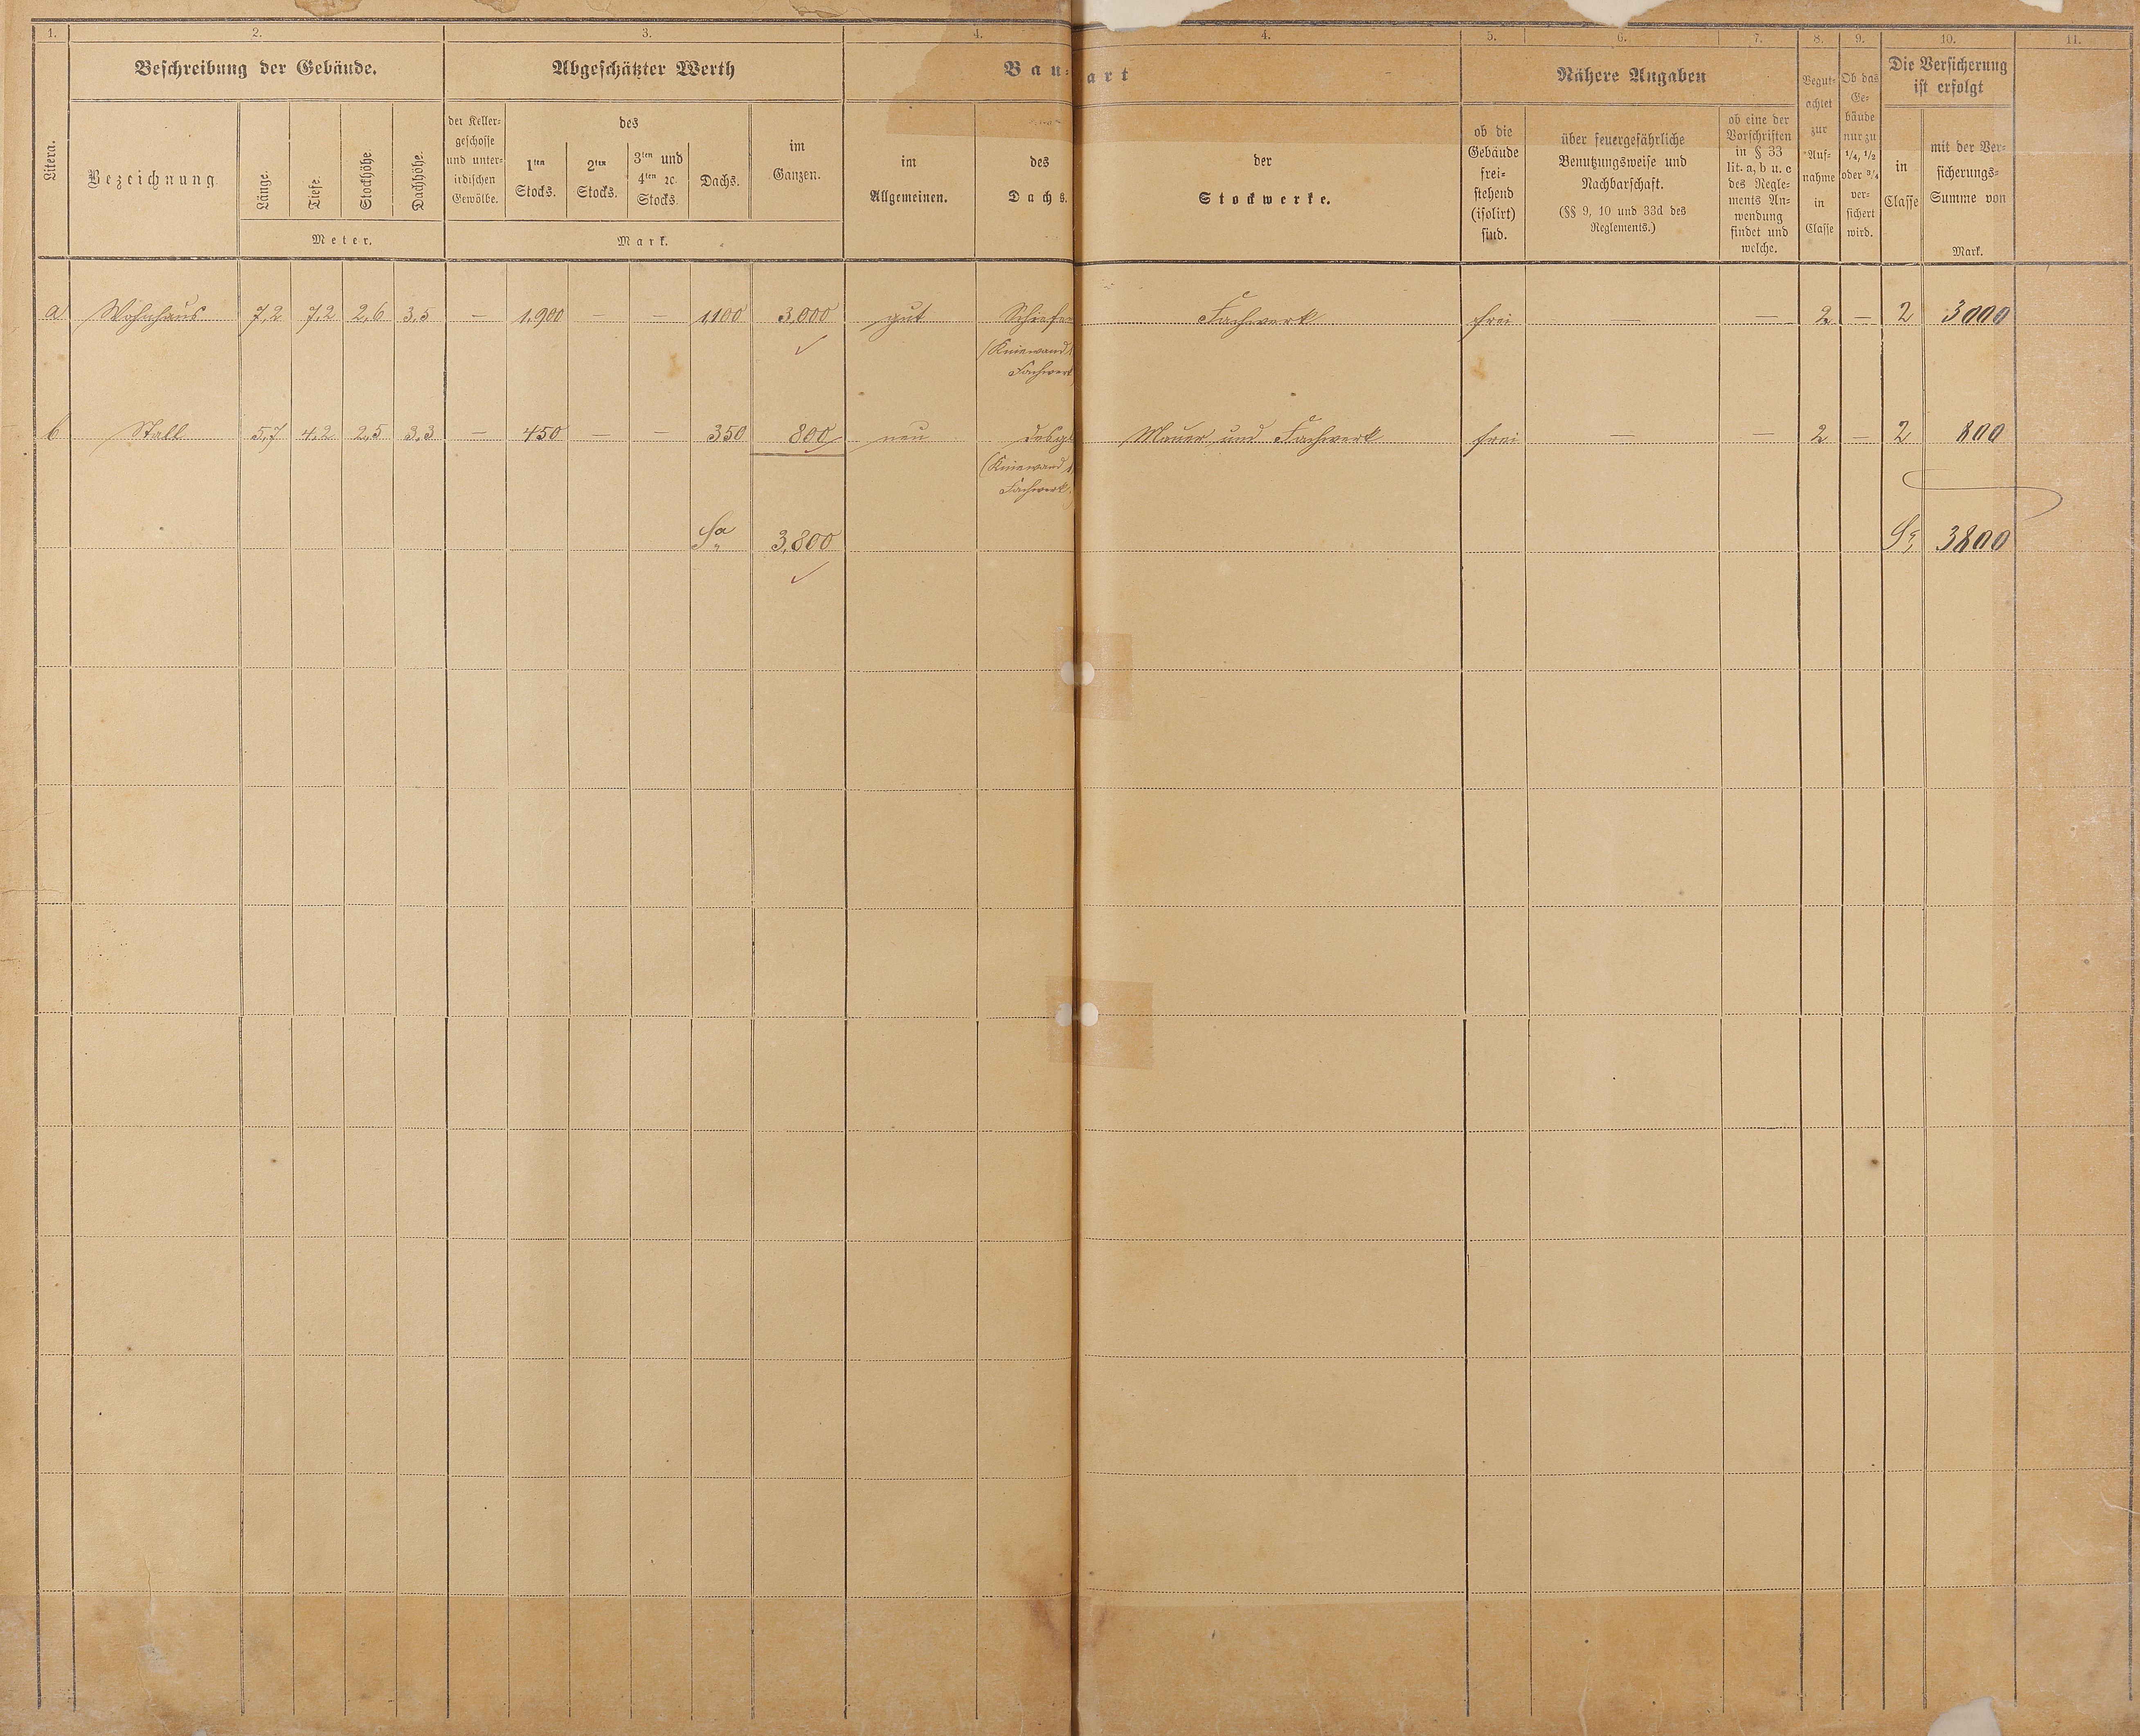 1. 2. 3. 4. 4. 5. 6. 7. 8. 9. 10. 11.
Litera.
Beschreibung der Gebäude.
Bezeichnung
Länge.
Tiefe.
Stockhöhe.
Dachhöhe.
Meter.
Abgeschätzter Werth
der Keller-
geschosse
und unter-
irdischen
Gewölbe.
des
1ten
Stocks.
2ten
Stocks.
3ten und
4ten ꝛc.
Stocks.
Dachs.
im
Ganzen.
Mark.
Bau-art
im
Allgemeinen.
des
Dachs.
der
Stockwerke.
Nähere Angaben
ob die
Gebäude
frei-
stehend
(isolirt)
sind.
über feuergefährliche
Benutzungsweise und
Nachbarschaft.
(§§ 9, 10 und 33d des
Reglements.)
ob eine der
Vorschriften
in § 33
lit. a, b u. c
des Regle-
ments An-
wendung
findet und
welche.
Begut-
achtet
zur
Auf-
nahme
in
Classe
Ob das
Ge-
bäude
nur zu
1/4, 1/2
oder 3/4
ver-
sichert
wird.
Die Versicherung
ist erfolgt
in
Classe
mit der Ver-
sicherungs-
Summe von
Mark.
a Wohnhaus 7,2 7,2 2,6 3,5 — 1,900 — — 1,100 3,000 gut Schiefer Fachwerk frei — — 2 — 2 3000
(Kniewand
Fachwerk
b Stall 5,7 4,2 2,5 3,3 — 450 — — 350 800 neu desgl Mauer und Fachwerk frei — — 2 — 2 800
(Kniewand
Fachwerk
Sa 3,800 Sa 3800